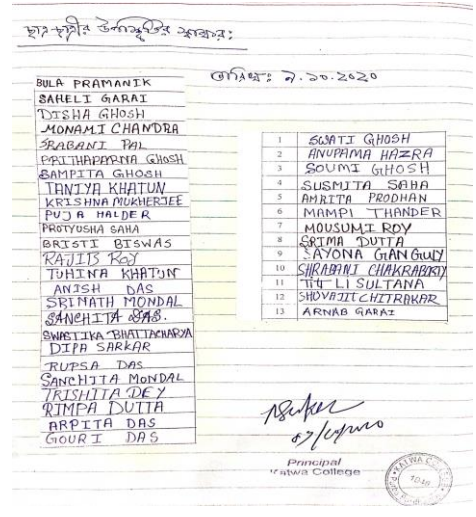 ছাত্র-ছাত্রীর উপস্থিতির স্বাক্ষর:
তারিখ: ৯.১০.২০২০
BULA PRAMANIK
SAHELI GARAI
DISHA GHOSH
MONAMI CHANDRA
SRABANI PAL
PRITHAPARNA GHOSH
SAMPITA GHOSH
TANIYA KHATUN
KRISHNA MUKHERJEE
PUJA HALDER
PROTYUSHA SAHA
BRISTI BISWAS
RAJIB ROY
TUHINA KHATUN
ANISH DAS
SRINATH MONDAL
SANCHITA DAS.
SWASTIKA BHATTACHARYA
DIPA SARKAR
RUPSA DAS
SANCHITA MONDAL
TRISHITA DEY
RIMPA DUTTA
ARPITA DAS
GOURI DAS
1 SWATI GHOSH
2 ANUPAMA HAZRA
3 SOUMI GHOSH
4 SUSMITA SAHA
5 AMRITA PRODHAN
6 MAMPI THANDER
7 MOUSUMI ROY
8 SRIMA DUTTA
9 SAYONA GANGULY
10 SHRABANI CHAKRABORTY
11 SULTANA
12 SHUVAJIT CHITRAKAR
13 ARNAB GARAI
Principal
Katwa College